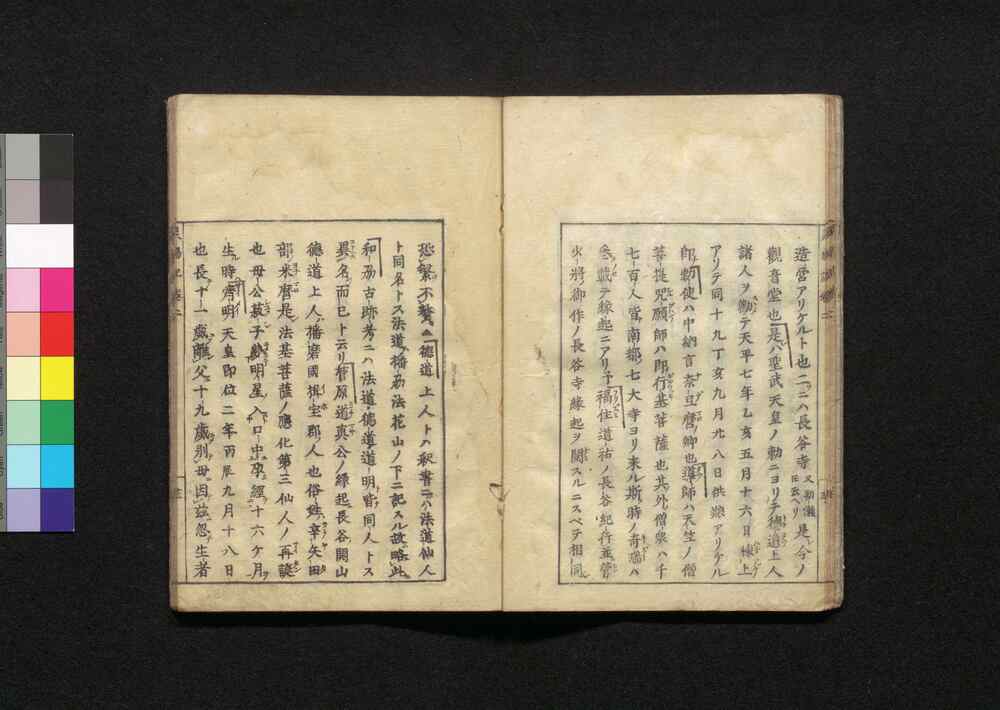 造営アリケルト也二ニハ長谷寺又初瀬トモ云ヘリ是今ノ
觀音堂也是ハ聖武天皇ノ勅ニヨリテ德道上人
諸人ヲ勸テ天平七年乙亥五月十六日棟上
アリテ同十九丁亥九月廿八日供樂アリケル
即勅使ハ中納言奈良麿卿也導師ハ天竺ノ僧
菩提咒願師ハ即行基菩薩也其外僧衆ハ千
七百人皆南都七大寺ヨリ来ル斯時ノ奇瑞ハ
載テ縁起ニアリ予福住道祐ノ長谷紀行並菅
將御作ノ長谷寺縁起ヲ閲スルニスベテ相同
恐繁不贅△德道上人トハ釈書ニハ法道仙人
ト同名トス法道播州法花山ノ下ニ記スル故略此
和州古跡考ニハ法道德道道明皆同人トス
異名而已ト云リ菅原道真公ノ縁起長谷開山
德道上人ハ播磨國揖宝郡人也俗姓辛矢田
部米麿是法基菩薩ノ應化第三仙人ノ再誕
也母ハ公子夢明星入口中孕經十六ケ月
生時齊明天皇即位二年丙辰九月十八日
也長十一歲離父十九歲別母因茲忽生者